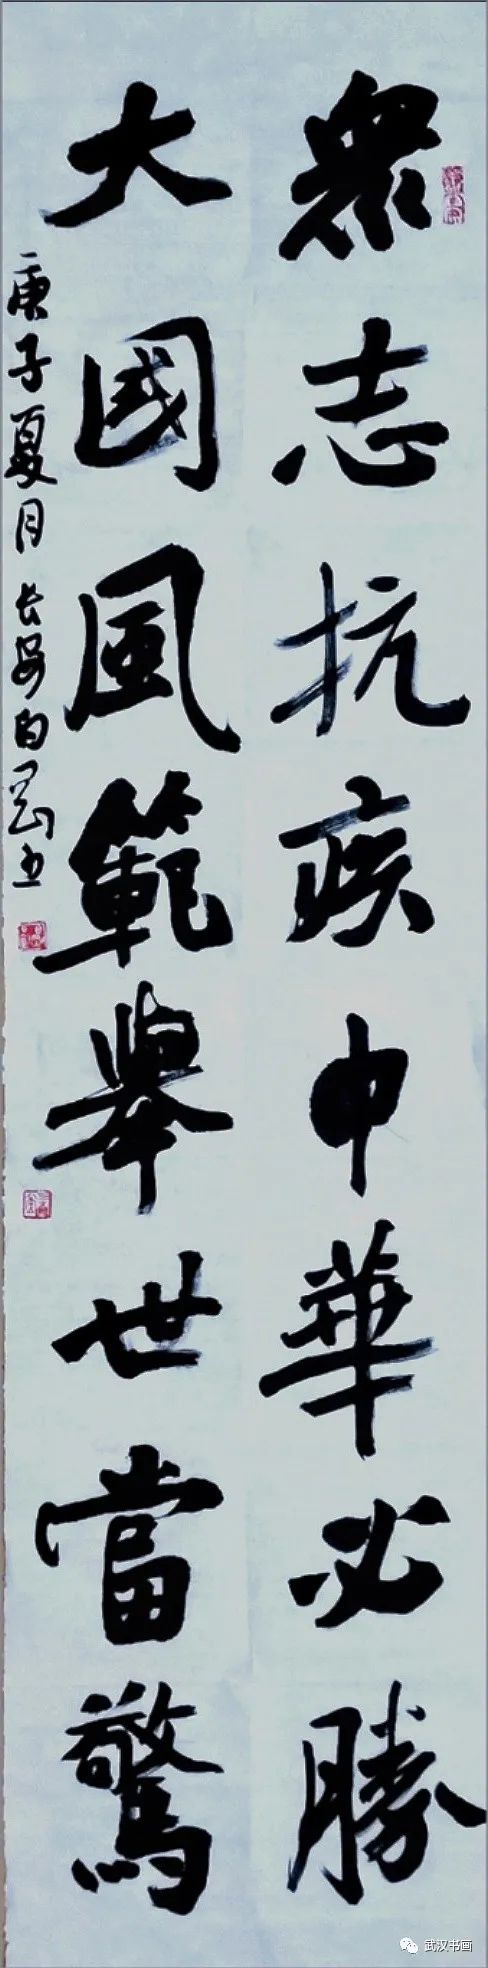 衆志抗疾中華必勝
大國風範舉世當驚
庚子夏月長安白
武汉书画